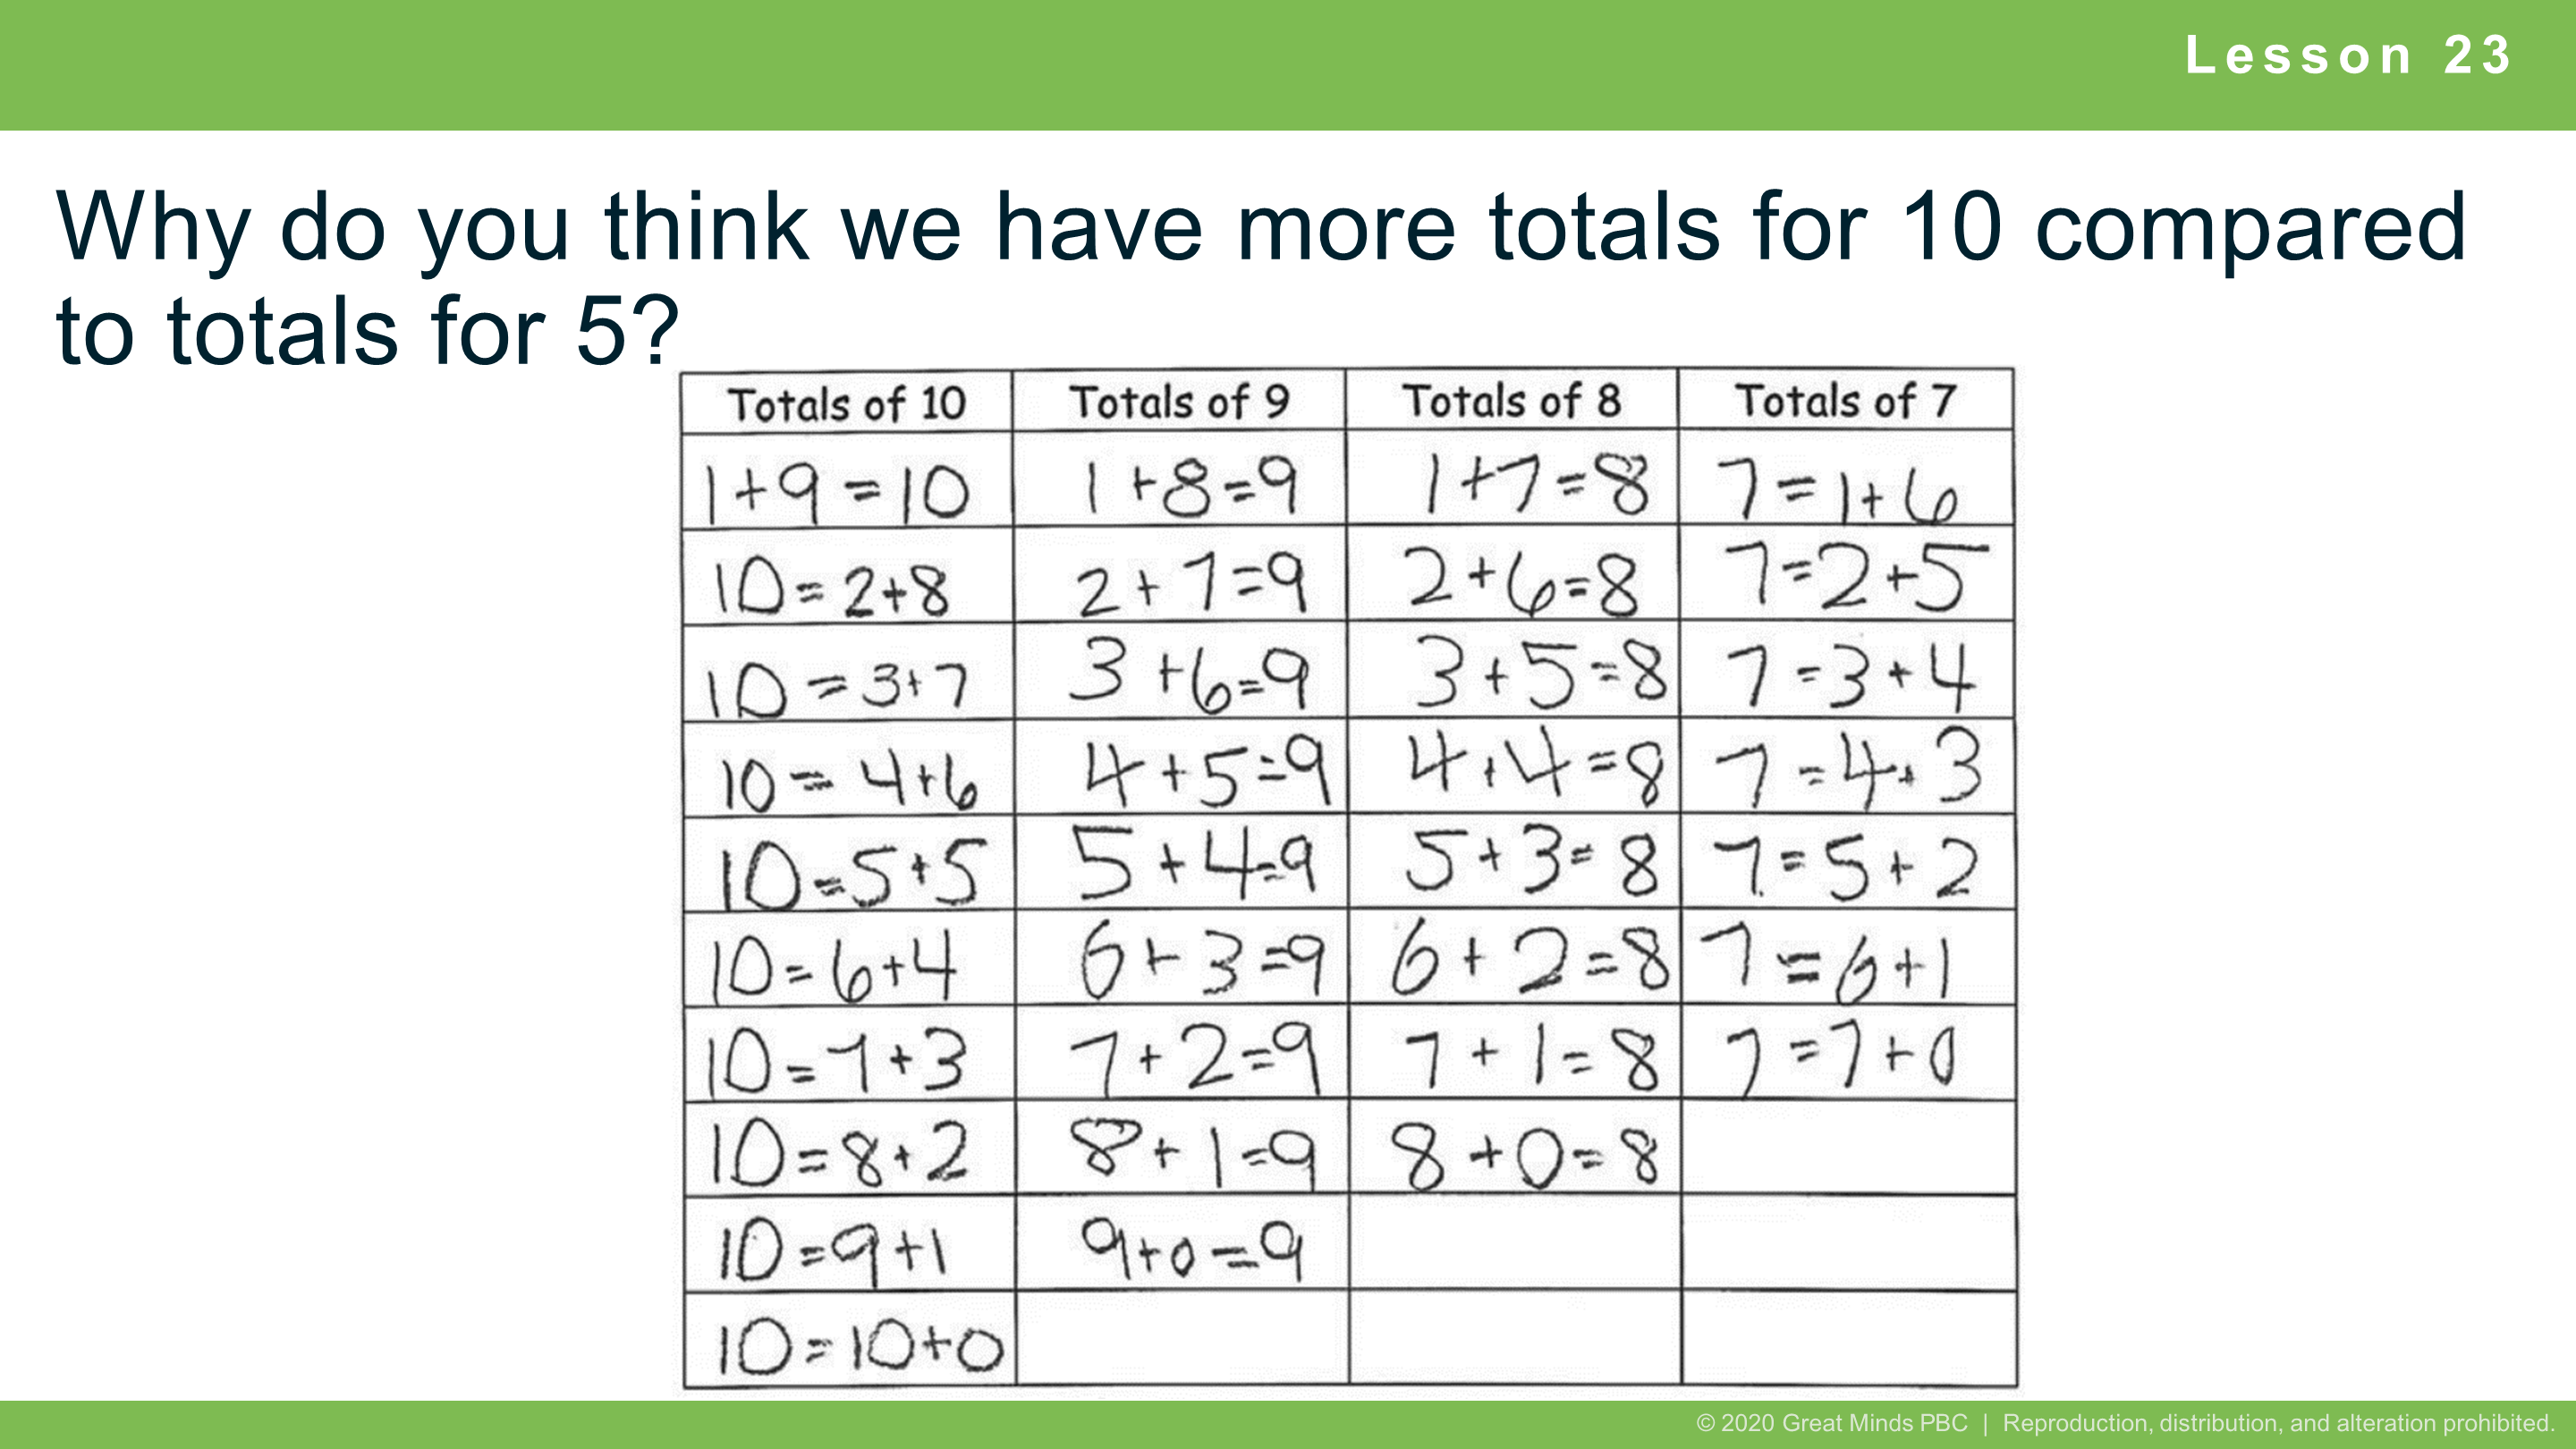 Lesson 23
Why do you think we have more totals for 10 compared
to totals for 5?
Totals of 10 Totals of 9 Totals of 8 Totals of 7
1+9=10 1+8=9 1+7=8 7=1+6
10=2+8 2+7=9 2+6=8 7=2+5
10=3+7 3+6=9 3+5=8 7=3+4
10=4+6 4+5=9 4+4=8 7=4+3
10=5+5 5+4=9 5+3=8 7=5+2
10=6+4 6+3=9 6+2=8 7=6+1
10=7+3 7+2=9 7+1=8 7=7+0
10=8+2 8+1=9 8+0=8
10=9+1 9+0=9
10=10+0
© 2020 Great Minds PBC | Reproduction, distribution, and alteration prohibited.